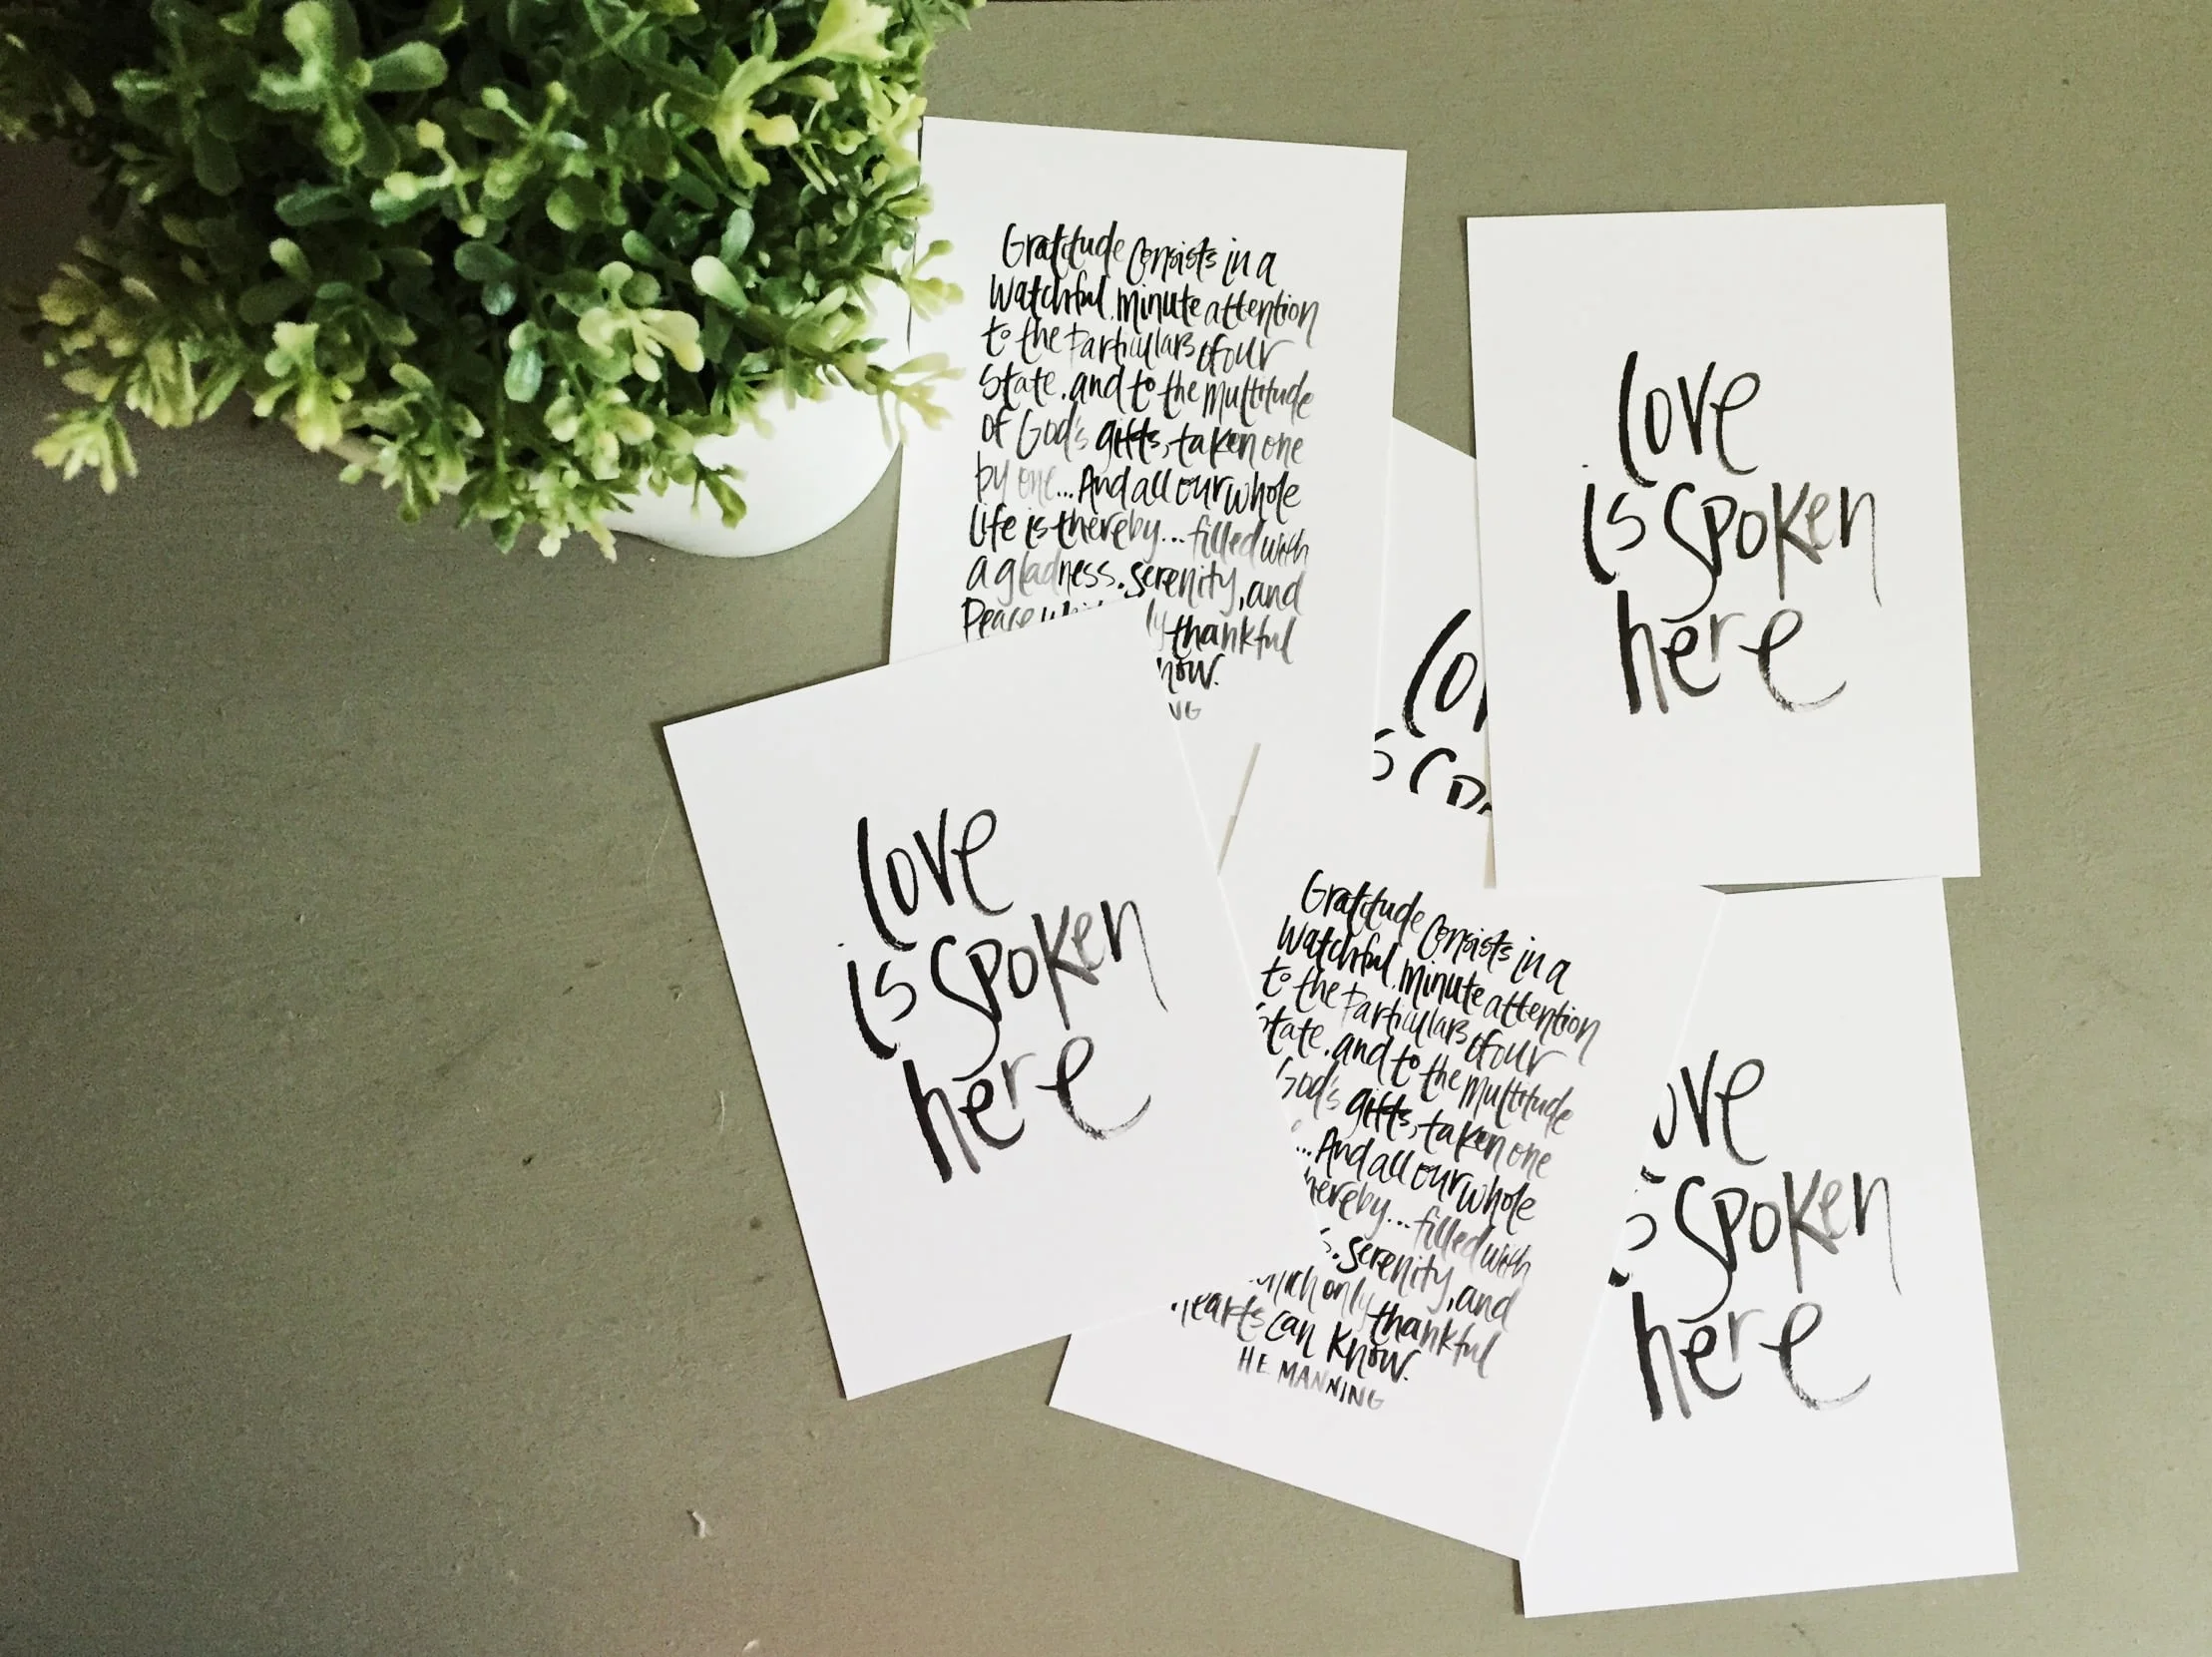 Gratitude consists in a
watchful, minute attention
to the particulars of our
state, and to the multitude
of God's gifts, taken one
by one... And all our whole
life is thereby... filled with
a gladness, serenity, and
Peace
thankful
love
is spoken
here
love
is spoken
here
Gratitude consists in a
watchful, minute attention
to the particulars of our
state, and to the multitude
God's gifts, taken one
...And all our whole
hereby... filled with
serenity, and
only thankful
hearts can know.
HE MANNING
ove
spoken
here